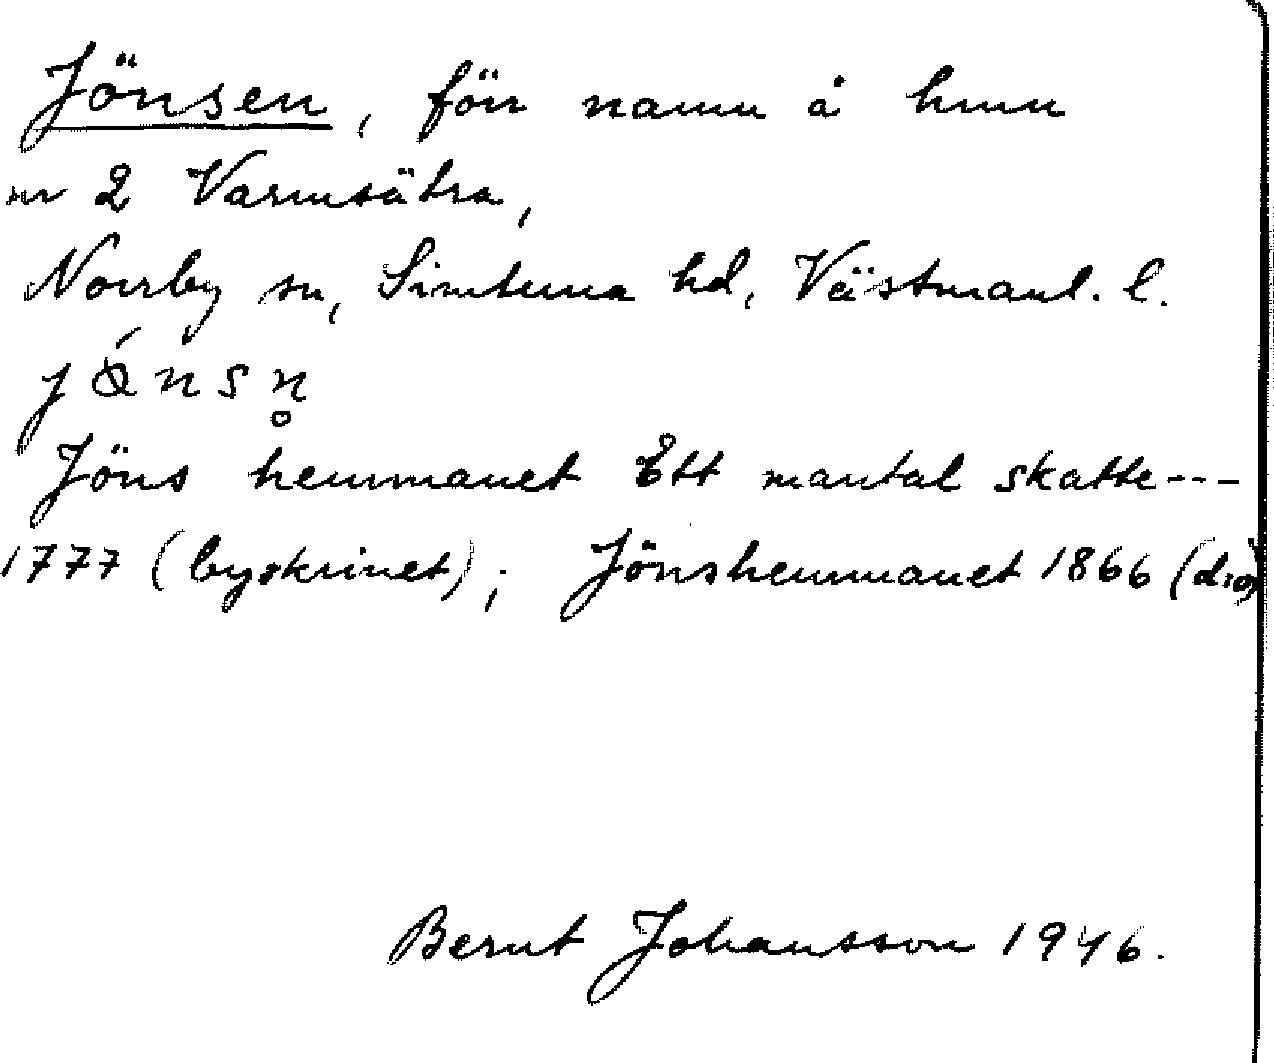 Jönsen, förr namn å hmn
nr 2 Varmsätra,
Norrby sn, Simtuna hd, Västmanl. l.
Jöns hemmanet Ett mantal skatte---
1777 (byskrinet); Jönshemmanet 1866 (d:o)
Bernt Johansson 1946.